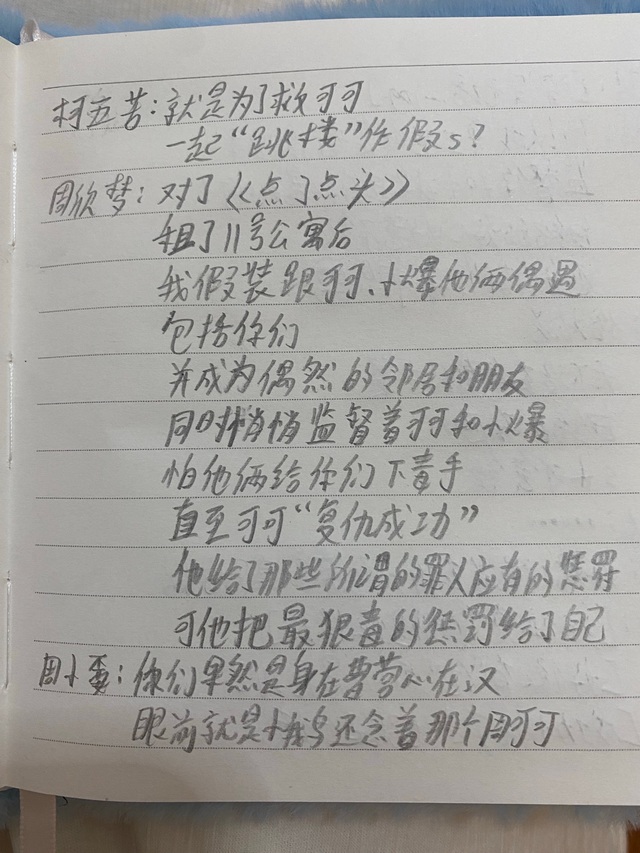 柯五苦：就是为了救可可
一起“跳楼”作假s？
周欣梦：对了《点了点头》
租了11号公寓后
我假装跟可可、小爆他俩偶遇
包括你们
并成为偶然的邻居和朋友
同时悄悄监督着可可和小爆
怕他俩给你们下毒手
直至可可“复仇成功”
他给了那些所谓的罪人应有的惩罚
可他把最狠毒的惩罚给了自己
周小：你们果然是身在曹营心在汉
眼前就是小鹅还念着那个周可可